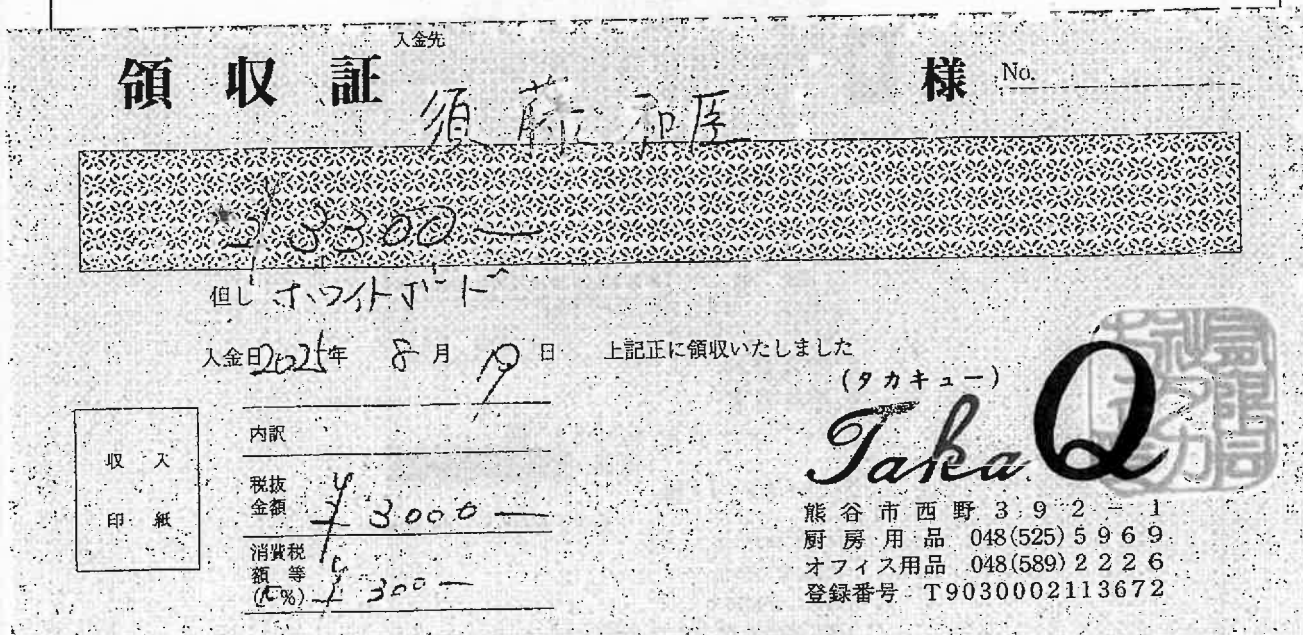 入金先
領収証 須藤和臣 様 No.
¥3300—
但し ホワイトボード
入金日2025年 8月 19日 上記正に領収いたしました
(タカキュー)
Taka Q
収入
印紙
内訳
税抜
金額 ¥3000—
消費税
額等
(10%) ¥300—
熊谷市西野392-1
厨房用品 048(525)5969
オフィス用品 048(589)2226
登録番号 T9030002113672